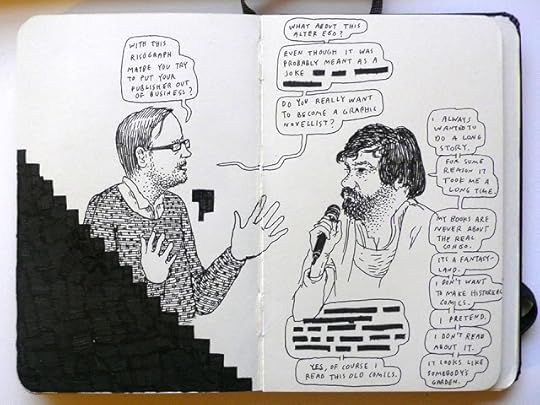 WITH THIS
RISOGRAPH
MAYBE YOU TRY
TO PUT YOUR
PUBLISHER OUT
OF BUSINESS?
WHAT ABOUT THIS
ALTER EGO?
EVEN THOUGH IT WAS
PROBABLY MEANT AS A
JOKE
DO YOU REALLY WANT
TO BECOME A GRAPHIC
NOVELLIST?
I ALWAYS
WANTED TO
DO A LONG
STORY.
FOR SOME
REASON IT
TOOK ME A
LONG TIME.
MY BOOKS ARE
NEVER ABOUT
THE REAL
CONGO.
ITS A FANTASY-
LAND.
I DON'T WANT
TO MAKE HISTORICAL
COMICS.
I PRETEND.
I DON'T READ
ABOUT IT.
IT LOOKS LIKE
SOMEBODY'S
GARDEN.
YES, OF COURSE I
READ THIS OLD COMICS.